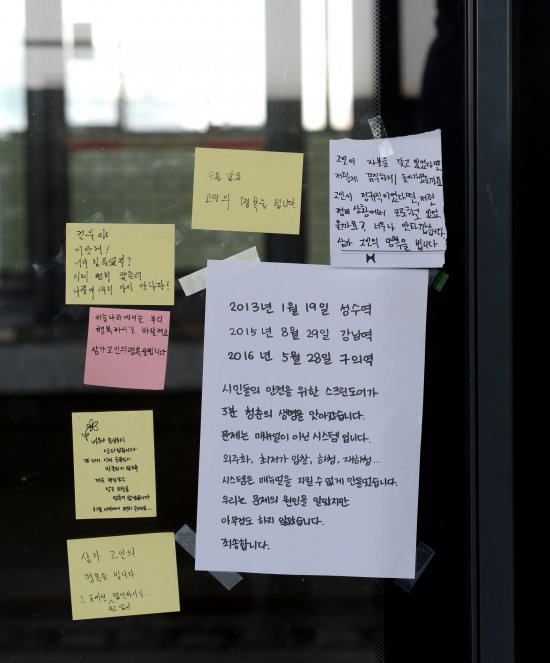 마음 깊은
고인의 명복을 빕니다.
고인이 자본을 갖고 있었다면
저렇게 끔찍하게 돌아가셨을까요
고인이 정규직이었다면, 저런
업무 상황에서 근로하고 있었
을까요? 너무나 안타깝습니다
삼가 고인의 명복을 빕니다
미안해!
너무 힘들었지?
이제 편히 잠들어
나중에 우리 다시 만나자!
하늘나라에서는 부디
행복하시길 바랄게요
삼가고인의명복을빕니다
2013년 1월 19일 성수역
2015년 8월 29일 강남역
2016년 5월 28일 구의역
시민들의 안전을 위한 스크린도어가
3분 청춘의 생명을 앗아갔습니다.
문제는 매뉴얼이 아닌 시스템 입니다.
외주화, 최저가 입찰, 하청, 재하청...
시스템은 매뉴얼을 지킬 수 없게 만들었습니다.
우리는 문제의 원인을 알았지만
아무것도 하지 않았습니다.
죄송합니다.
삼가 고인의
명복을 빕니다
그 곳에선